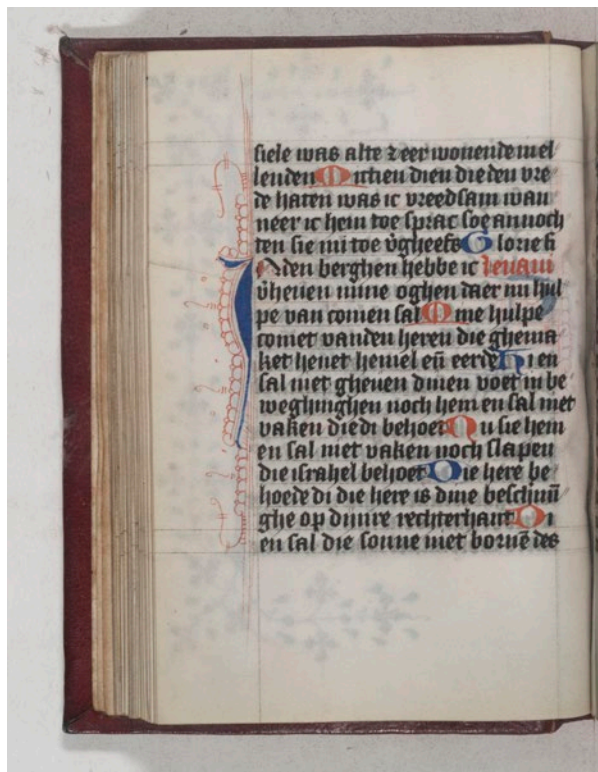 siele was alte zeer wonende in el
lenden Mitten dien die den vre
de haten was ic vreedsam wan
neer ic hem toe sprac soe annoch
ten sie mi toe v̄gheefs Glorie si
In den berghen hebbe ic Leuaui
v̄heuen mine oghen daer mi hul
pe van comen sal Mine hulpe
comet vanden heren die ghema
ket heuet hemel eñ eerde Hi en
sal niet gheuen dinen voet in be
weghinghen noch hem en sal niet
vaken die di behoet Nu sie hem
en sal niet vaken noch slapen
die israhel behoet Die here be
hoede di die here is dine beschuñ
ghe op dinre rechterhant Di
en sal die sonne niet bornē des